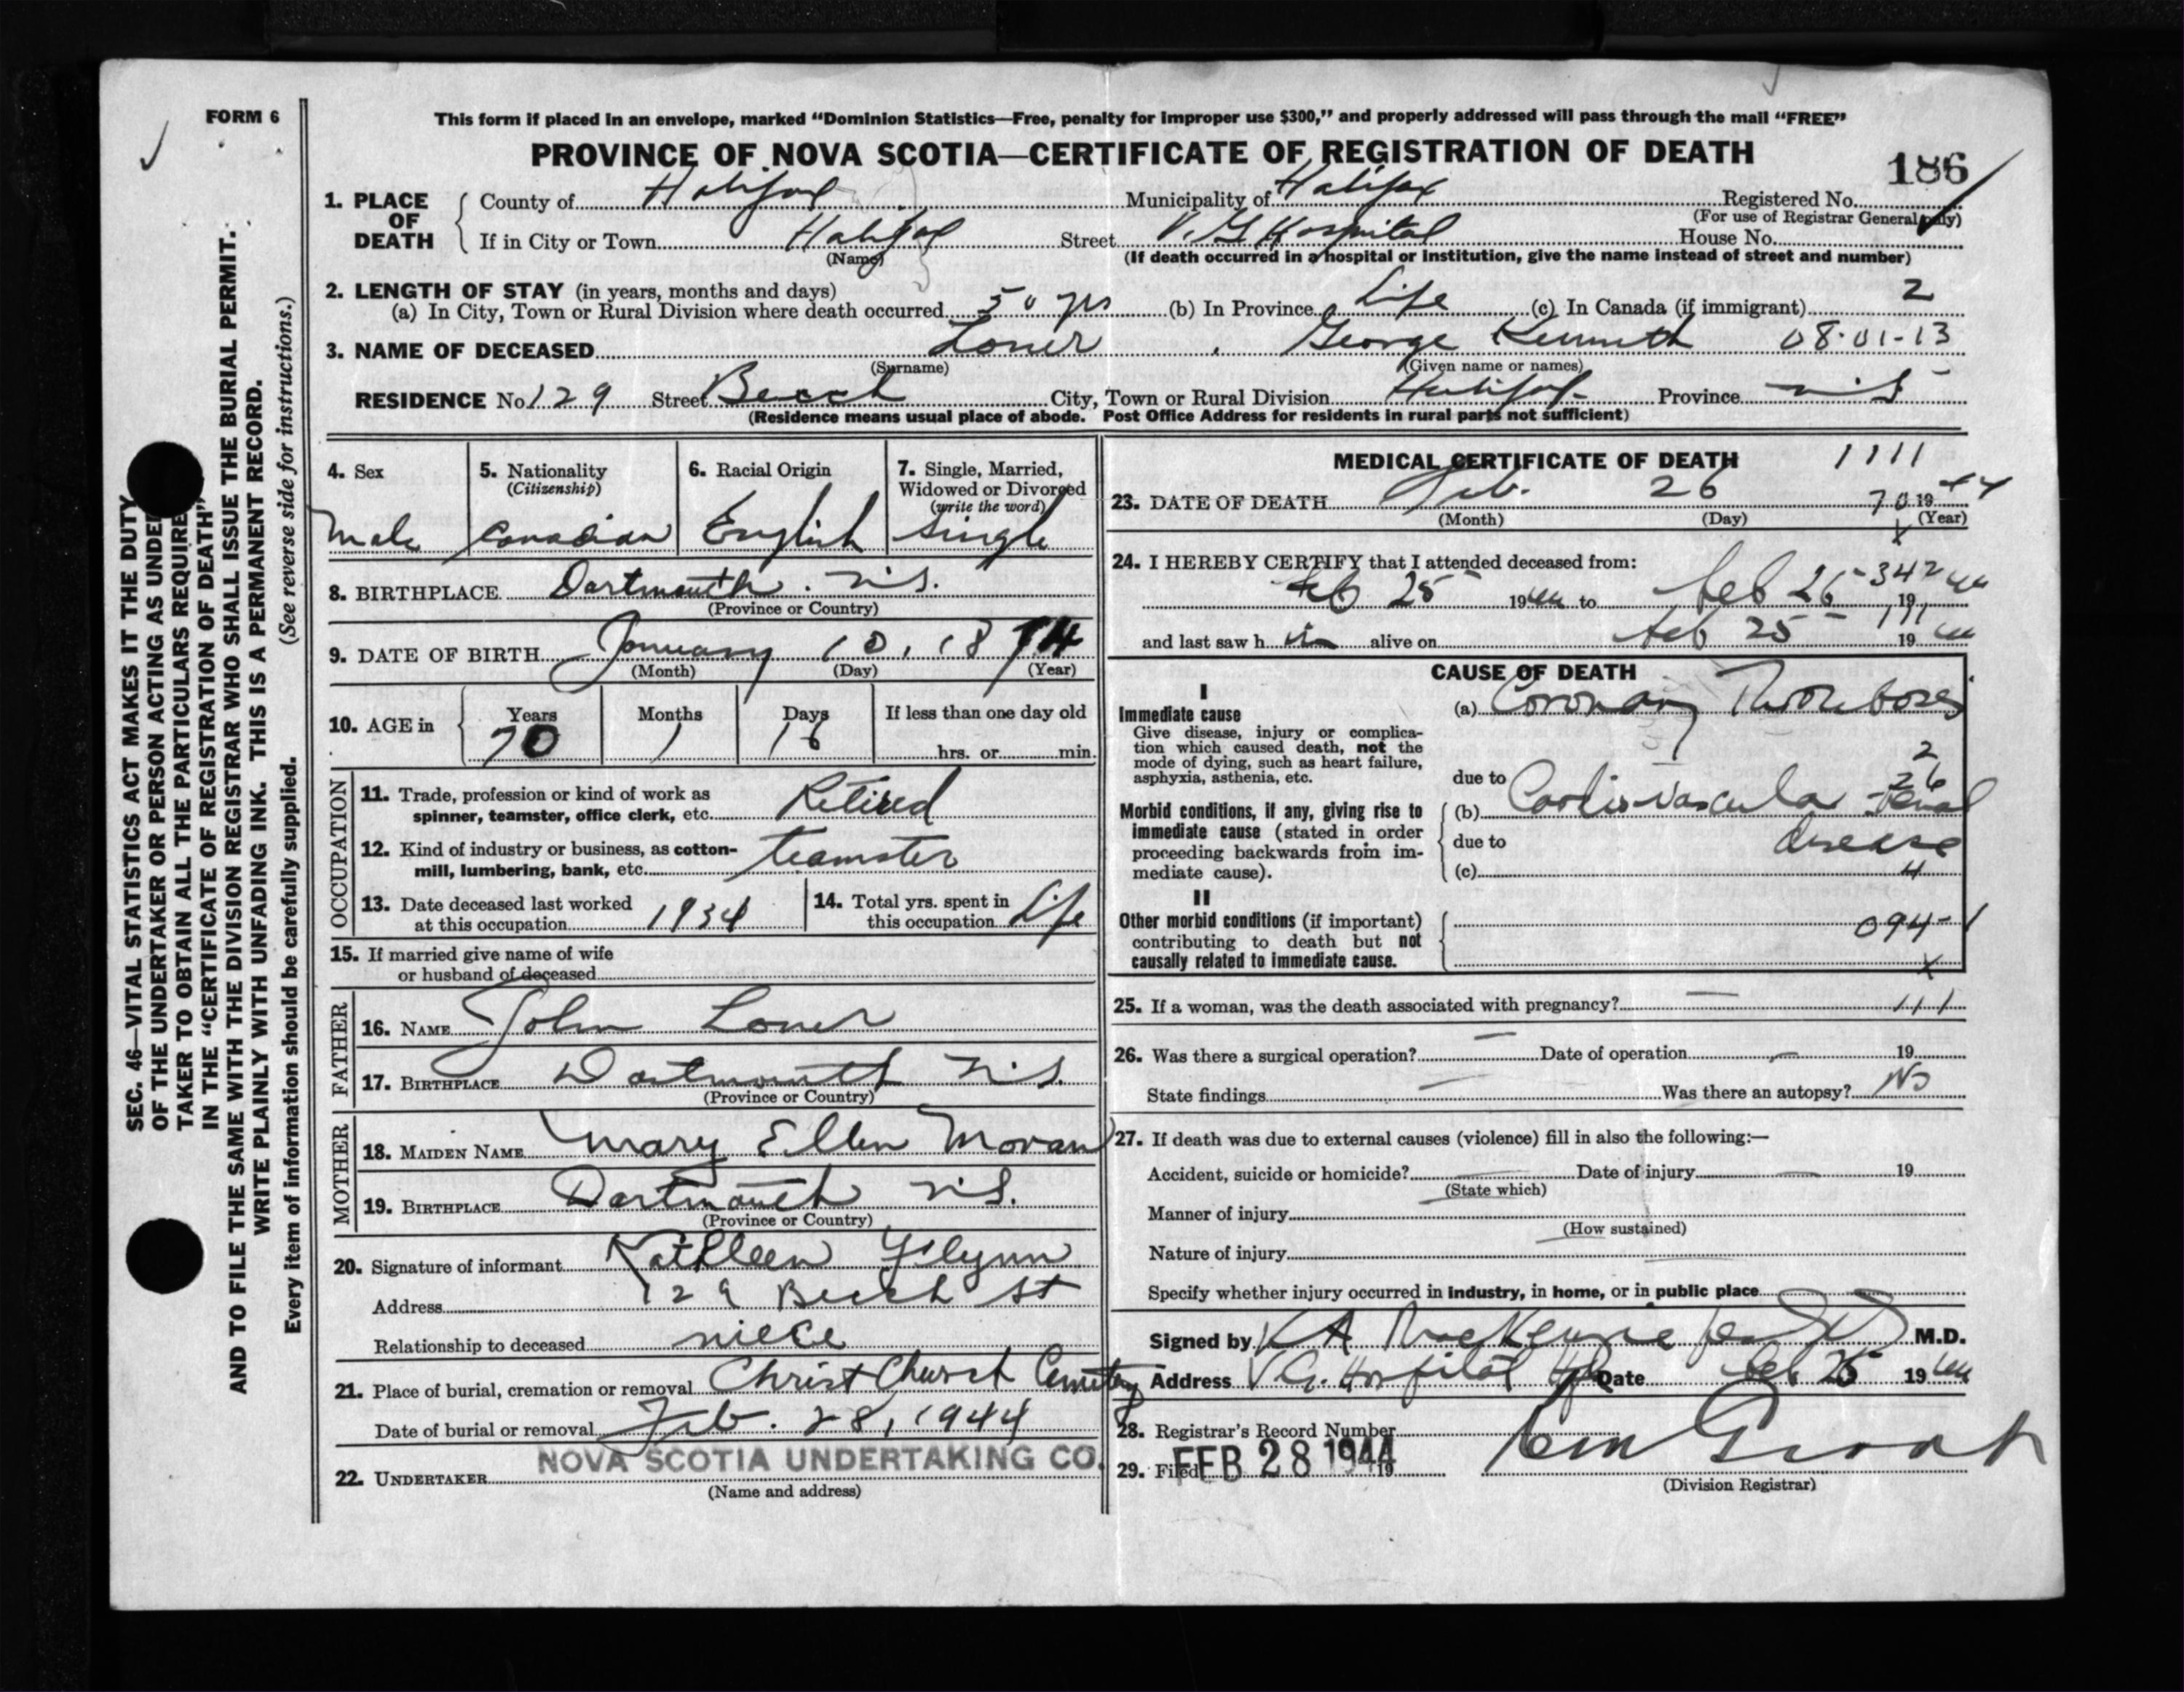 FORM 6
This form if placed in an envelope, marked “Dominion Statistics—Free, penalty for improper use $300,” and properly addressed will pass through the mail “FREE”
PROVINCE OF NOVA SCOTIA—CERTIFICATE OF REGISTRATION OF DEATH
186
1. PLACE OF DEATH { County of Halifax Municipality of Halifax Registered No.
(For use of Registrar General only)
If in City or Town Halifax Street V.G Hospital House No.
(Name) (If death occurred in a hospital or institution, give the name instead of street and number)
2. LENGTH OF STAY (in years, months and days) 2
(a) In City, Town or Rural Division where death occurred 50 yrs (b) In Province Life (c) In Canada (if immigrant)
3. NAME OF DECEASED Loner, George Kenneth 08-01-13
(Surname) (Given name or names)
RESIDENCE No 129 Street Beech City, Town or Rural Division Halifax Province N.S
(Residence means usual place of abode. Post Office Address for residents in rural parts not sufficient)
4. Sex
Male
5. Nationality
(Citizenship)
Canadian
6. Racial Origin
English
7. Single, Married,
Widowed or Divorced
(write the word)
Single
8. BIRTHPLACE Dartmouth. N.S.
(Province or Country)
9. DATE OF BIRTH January 10, 1874
(Month) (Day) (Year)
10. AGE in { Years Months Days If less than one day old
70 1 16 hrs. or min.
OCCUPATION
11. Trade, profession or kind of work as
spinner, teamster, office clerk, etc. Retired
12. Kind of industry or business, as cotton-
mill, lumbering, bank, etc. teamster
13. Date deceased last worked
at this occupation 1934
14. Total yrs. spent in
this occupation Life
15. If married give name of wife
or husband of deceased
FATHER
16. NAME John Loner
17. BIRTHPLACE Dartmouth N.S.
(Province or Country)
MOTHER
18. MAIDEN NAME Mary Ellen Moran
19. BIRTHPLACE Dartmouth N.S.
(Province or Country)
20. Signature of informant Kathleen Flynn
Address 129 Beech St
Relationship to deceased niece
21. Place of burial, cremation or removal Christ Church Cemetery
Date of burial or removal Feb. 28, 1944
22. UNDERTAKER NOVA SCOTIA UNDERTAKING CO.
(Name and address)
MEDICAL CERTIFICATE OF DEATH 1111
23. DATE OF DEATH Feb. 26 70 19 44
(Month) (Day) (Year)
x
24. I HEREBY CERTIFY that I attended deceased from:
Feb 25 1944 to Feb 26 342 19 44
and last saw h im alive on Feb 25 111 19 44
CAUSE OF DEATH
I
Immediate cause
Give disease, injury or complica-
tion which caused death, not the
mode of dying, such as heart failure,
asphyxia, asthenia, etc.
(a) Coronary Thrombosis
2
due to 26
Morbid conditions, if any, giving rise to
immediate cause (stated in order
proceeding backwards from im-
mediate cause).
(b) Cardio-vascular-renal
due to disease
(c) 4
II
Other morbid conditions (if important)
contributing to death but not
causally related to immediate cause.
094-1
x
25. If a woman, was the death associated with pregnancy? — 111
26. Was there a surgical operation? — Date of operation — 19
State findings — Was there an autopsy? No
27. If death was due to external causes (violence) fill in also the following:—
Accident, suicide or homicide? — Date of injury — 19
(State which)
Manner of injury
(How sustained)
Nature of injury
Specify whether injury occurred in industry, in home, or in public place
Signed by K A MacKenzie M.D.
Address V.G. Hospital Hfx Date Feb 19 44
28. Registrar's Record Number
29. Filed FEB 28 1944 19
(Division Registrar)
SEC. 46—VITAL STATISTICS ACT MAKES IT THE DUTY
OF THE UNDERTAKER OR PERSON ACTING AS UNDER
TAKER TO OBTAIN ALL THE PARTICULARS REQUIRE
IN THE “CERTIFICATE OF REGISTRATION OF DEATH”
AND TO FILE THE SAME WITH THE DIVISION REGISTRAR WHO SHALL ISSUE THE BURIAL PERMIT.
WRITE PLAINLY WITH UNFADING INK. THIS IS A PERMANENT RECORD.
Every item of information should be carefully supplied. (See reverse side for instructions.)